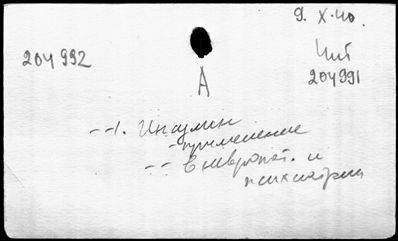 9. X-40.
204 992
Чит
204991
А
--1. Инсулин
- применение
-- в невропат. и
психиатрии